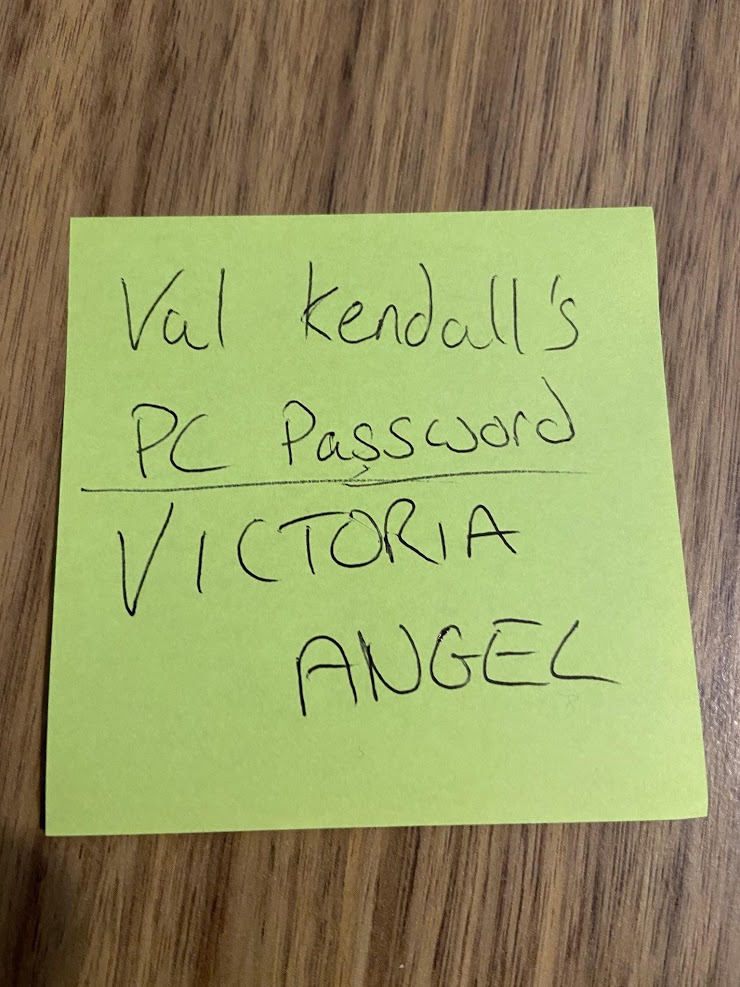 Val Kendall's
PC Password
VICTORIA
ANGEL